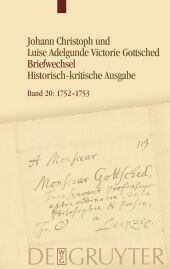 Johann Christoph und
Luise Adelgunde Victorie Gottsched
Briefwechsel
Historisch-kritische Ausgabe
Band 20: 1752–1753
A Monsieur
Monsieur Gottsched,
Professeur
extraordinaire
Philosophie & Poesie,
à Leipzig.
DE GRUYTER